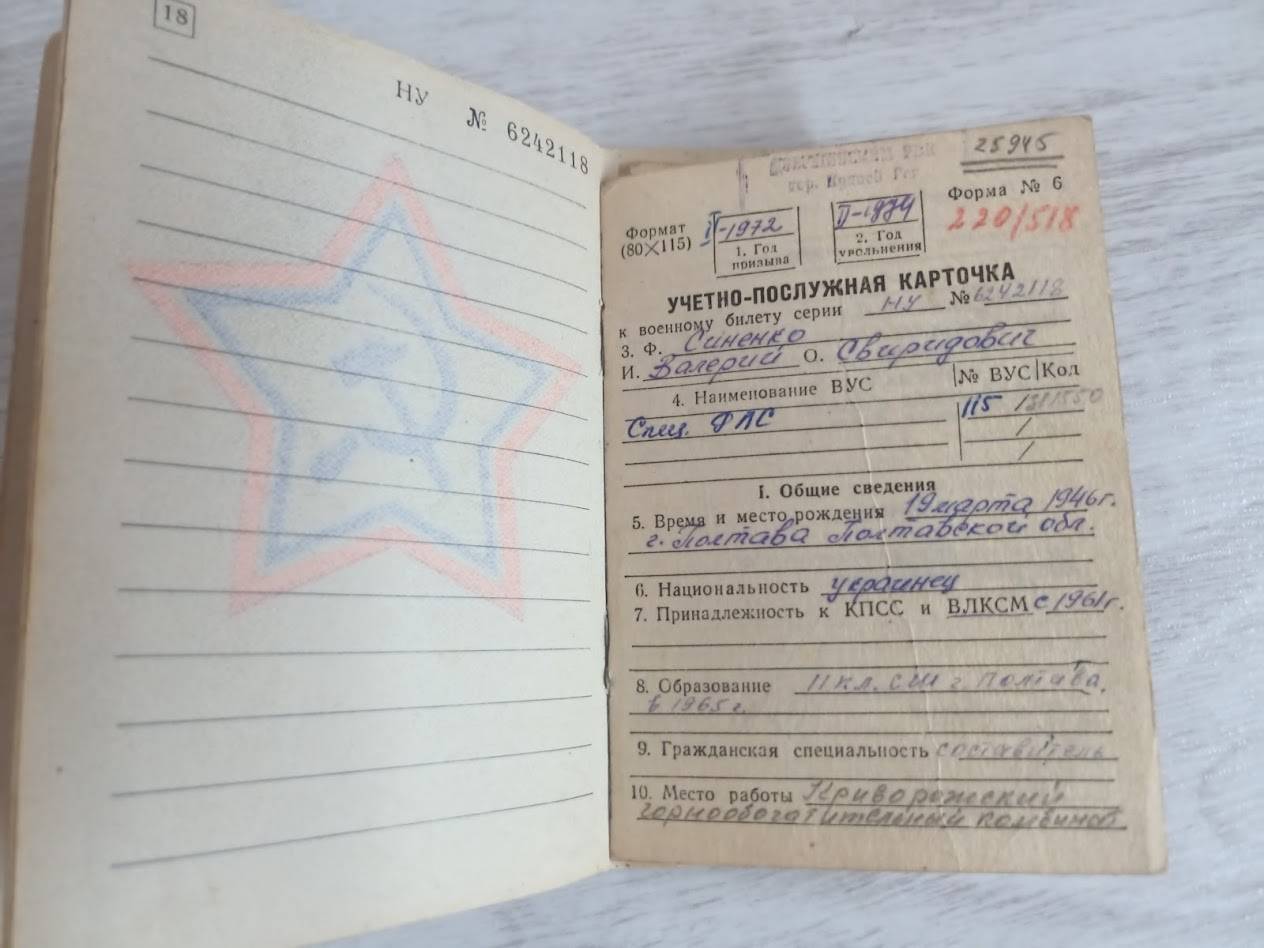 18
НУ № 6242118
25945
Форма № 6
220/518
Формат
(80×115)
-1972
1. Год
призыва
II-1974
2. Год
увольнения
УЧЕТНО-ПОСЛУЖНАЯ КАРТОЧКА
к военному билету серии НУ № 6242118
3. Ф. Синенко
И. Валерий О. Свиридович
4. Наименование ВУС № ВУС Код
Спец. ФПС 115
I. Общие сведения
5. Время и место рождения 19 марта 1946 г.
г. Полтава Полтавской обл.
6. Национальность украинец
7. Принадлежность к КПСС и ВЛКСМ с 1961 г.
8. Образование 11 кл. СШ г. Полтава,
в 1965 г.
9. Гражданская специальность составитель
10. Место работы Криворожский
горнообогатительный комбинат